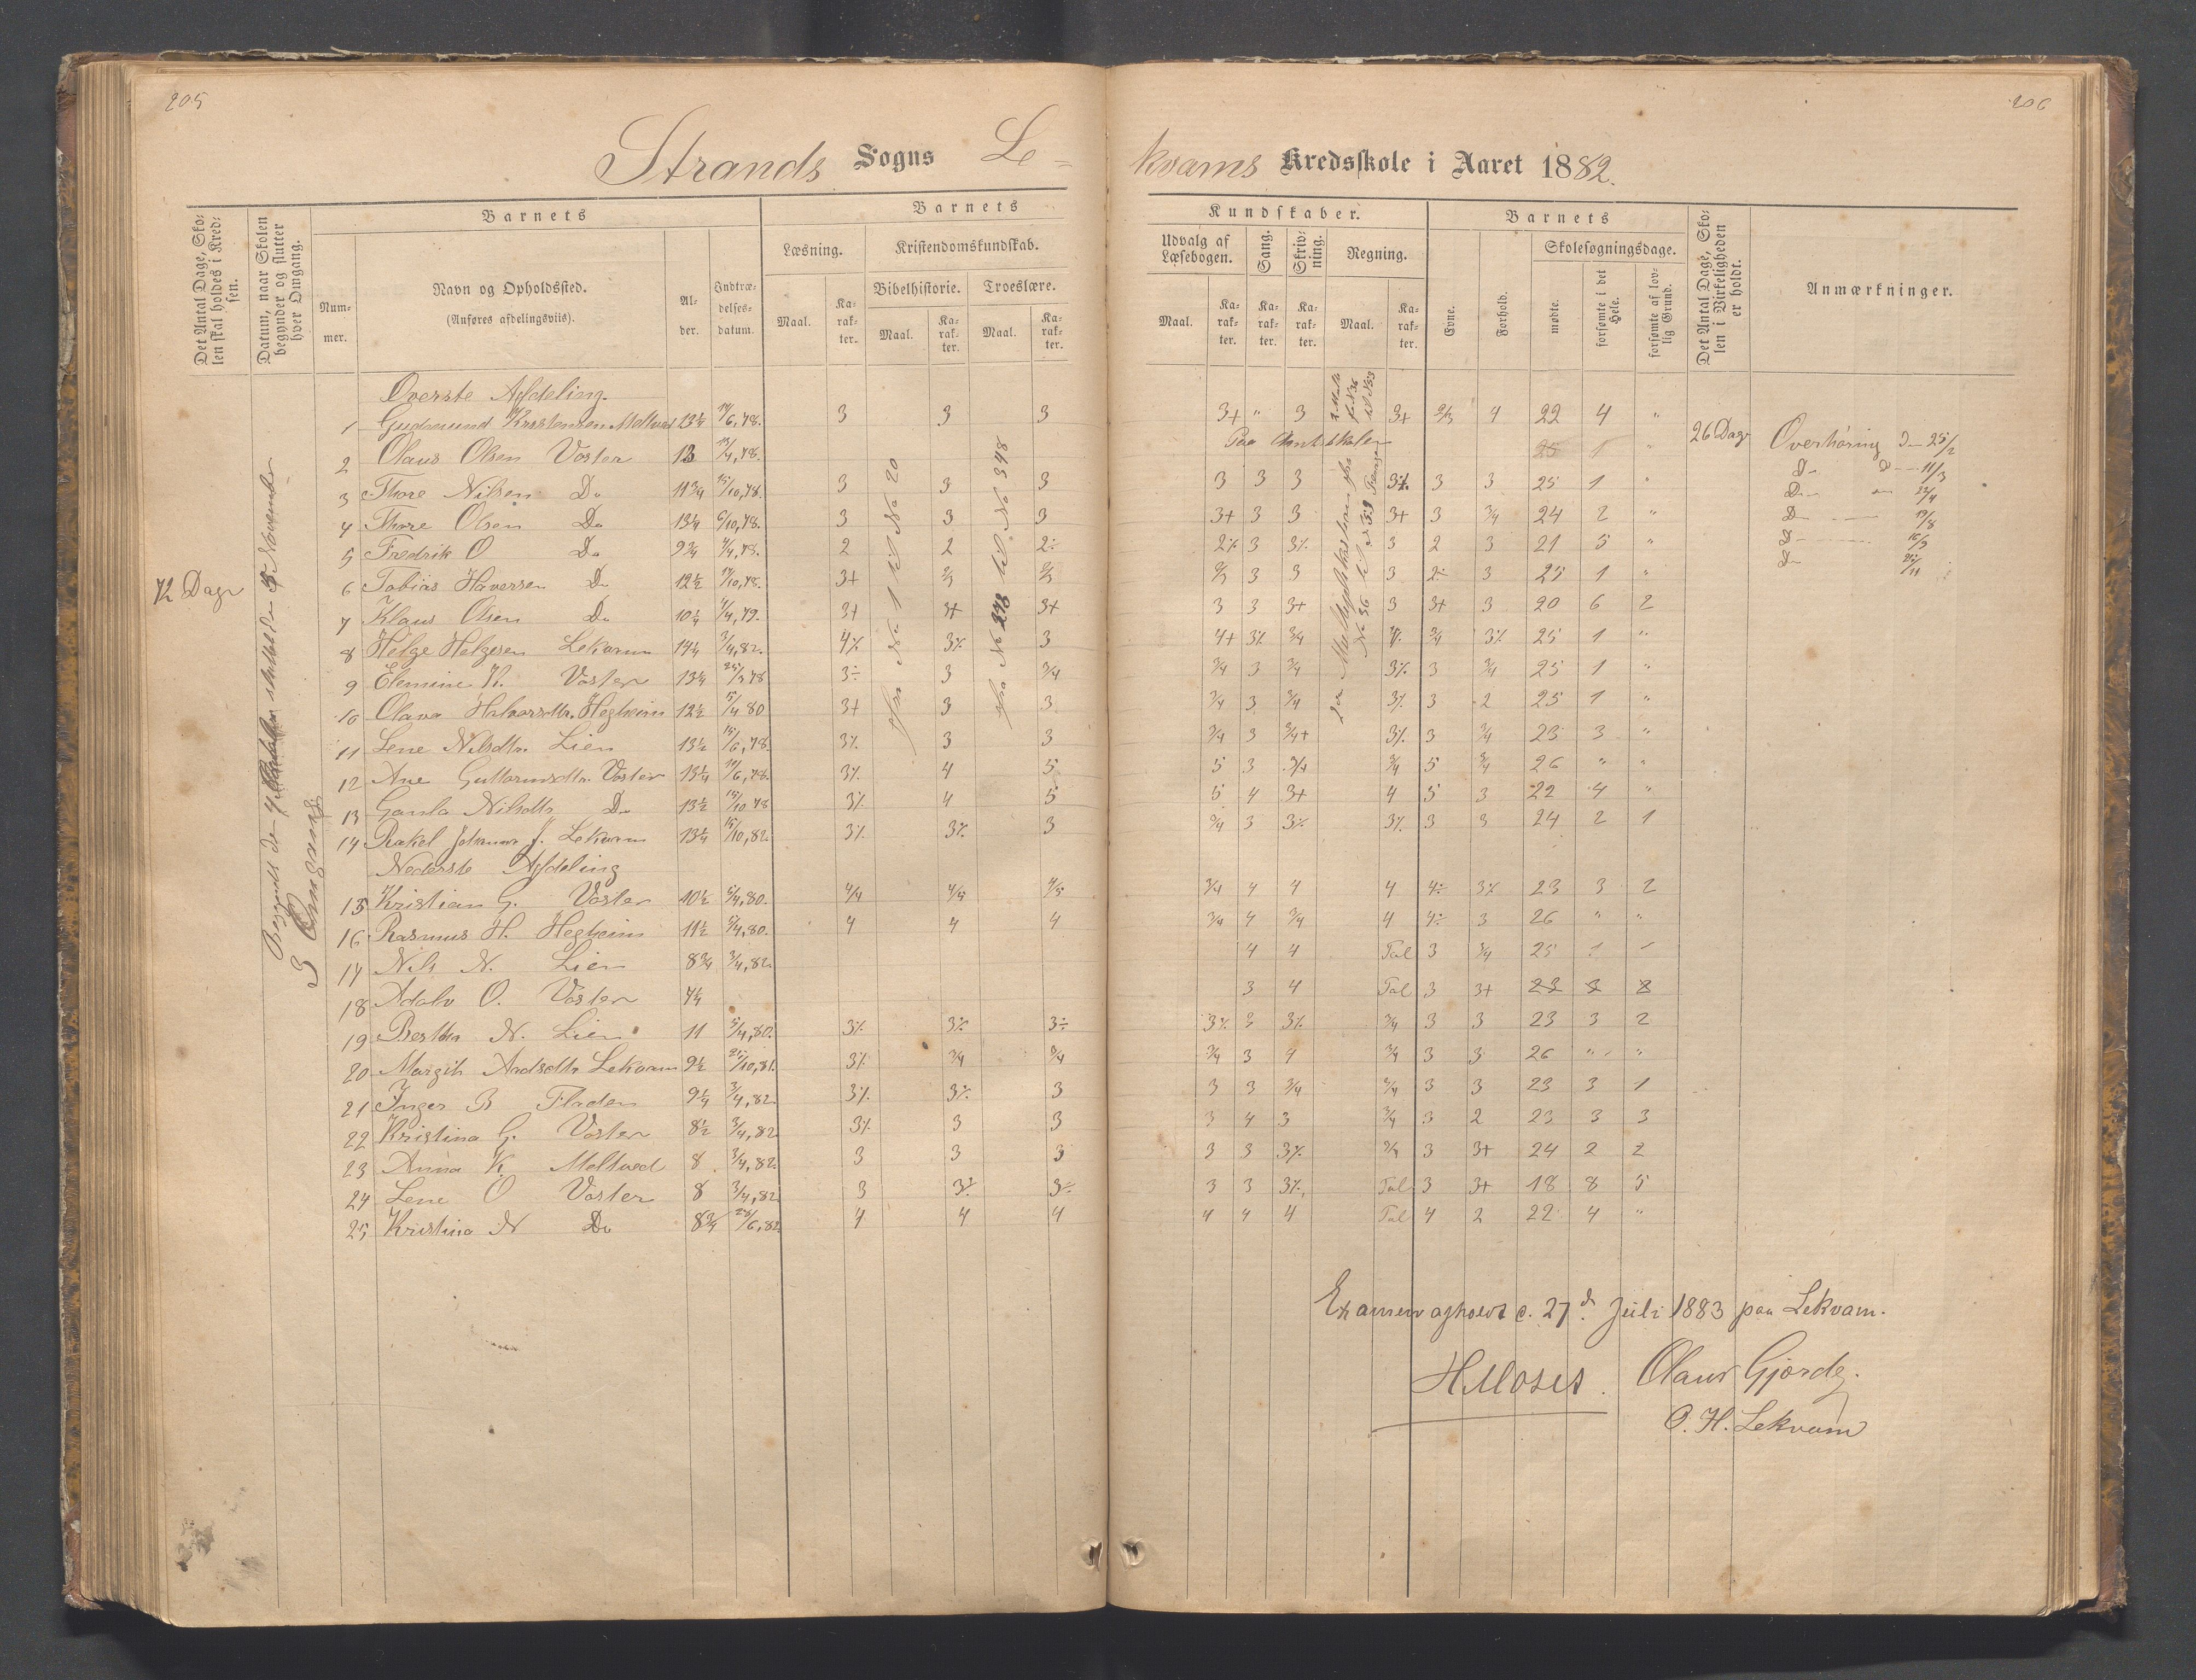 205
206
Strands Sogns Le-
kvams Kredsskole i Aaret 1882.
Det Antal Dage, Skolen skal holdes i Kredsen.
Datum, naar Skolen begynder og slutter hver Omgang.
Barnets
Nummer.
Navn og Opholdssted.
(Anføres afdelingsviis).
Alder.
Indtrædelsesdatum.
Barnets
Læsning.
Kristendomskundskab.
Bibelhistorie.
Troeslære.
Maal.
Karakter.
Maal.
Karakter.
Maal.
Karakter.
Kundskaber.
Udvalg af Læsebogen.
Sang.
Skrivning.
Regning.
Maal.
Karakter.
Karakter.
Karakter.
Maal.
Karakter.
Barnets
Evne.
Forhold.
Skolesøgningsdage.
mødte.
forsømte i det Hele.
forsømte af lovlig Grund.
Det Antal Dage, Skolen i Virkeligheden er holdt.
Anmærkninger.
72 Dage
3 Omgang
fra No 1 til No 20
til No 348
Øverste Afdeling.
1 Gudmund Kristensen Meltved 13¼ 6,78. 3 3 3 3+ " 3 3+ 2/3 4 22 4 "
2 Olaus Olsen Voster 13 4,78. Paa Amtsskolen 25 1 "
3 Thore Nilsen Do 11¾ 15/10,78. 3 3 3 3 3 3 3 3 25 1 "
4 Thore Olsen Do 13¼ 6/10,78. 3 3 3 3+ 3 3 3+ 3 3/4 24 2 "
5 Fredrik O Do 9¾ 4/4,78. 2 2 2÷ 2% 3 3% 3 2 3 21 5 "
6 Tobias Haversen Do 12½ 10,78. 3+ 2/3 2/3 2/3 3 3 3 2÷ 3 25 1 "
7 Klaus Olsen Do 10¼ 4/4,79. 3+ 3+ 3+ 3 3 3+ 3 3+ 3 20 6 2
8 Helge Helgesen Lekvam 14¼ 3/4,82. 4% 3% 3 4+ 3% 3/4 3/4 3% 25 1 "
9 Elemine K. Voster 13¼ 78 3÷ 3 3/4 3/4 3 3/4 3% 3 3/4 25 1 "
10 Olava Halvorsdtr. Hegheim 12½ 5/4 80 3+ 3 3 3/4 3 3/4 3% 3 2 25 1 "
11 Lene Nilsdtr. Lien 13½ 15/6,78. 3% 3 3 3/4 3 3/4+ 3% 3 3/4 23 3 "
12 Ane Guttormsdtr. Voster 13¼ 6,78. 3% 4 5 5 3 3/4 3/4 5 3/4 26 " "
13 Nilsdtr Do 13½ 15/10 78 3% 4 5 5 4 3+ 4 5 3 22 4 "
14 Rakel J. Lekvam 13¼ 15/10,82. 3% 3% 3 3/4 3 3% 3% 3 3 24 2 1
Nederste Afdeling
15 Kristian G. Voster 10½ 5/4,80. 4/4 4/5 4/5 3/4 4 4 4 4÷ 3% 23 3 2
16 Rasmus H. Hegheim 11½ 5/4,80. 4 4 4 3/4 4 3/4 4 4÷ 3 26 " "
17 Nils N. Lien 8¾ 3/4,82. 4 4 Tal 3 3/4 25 1
18 Adolv O. Voster 7¼ 3 4 Tal 3 3+ 23 3 2
19 Bertha N. Lien 11 5/4,80. 3% 3% 3÷ 3% 3 3% 3/4 3 3 23 3 2
20 Margith Aadsdtr Lekvam 9½ 10,81. 3% 3/4 3/4 3/4 3 4 3/4 3 3 26 " "
21 Inger B Fladen 9¼ 3/4,82. 3% 3% 3 3 3 3/4 3/4 3 3 23 3 1
22 Kristina G. Voster 8½ 3/4,82. 3% 3 3 3 4 3 3/4 3 2 23 3 3
23 Anna K. Meltved 8 3/4,82. 3 3 3 3 3 3% 3/4 3 3+ 24 2 2
24 Lene O Voster 8 3/4,82 3 3% 3% 3 3 3% Tal 3 3+ 18 8 5
25 Kristina N Do 8¾ 6,82 4 4 4 4 4 4 Tal 4 2 22 4 "
26 Dage
Overhøring D 25/2
D 11/3
D
D 19/8
D
D
Examen afholdt d. 27d Juli 1883 paa Lekvam.
H Moses. Olaus Gjorde.
O. H. Lekvam